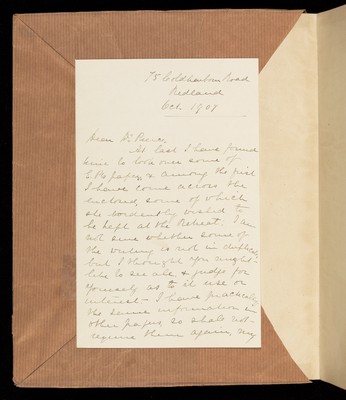 75 Coldharbour Road
Redland
Oct. 1907
Dear Dr Pierce,
At last I have found
time to look over some of
E.P's papers & among the first
I have come across the
enclosed, some of which
she evidently wished to
be kept at the Retreat. I am
not sure whether some of
the writing is not in duplicate,
but I thought you might
like to see all & judge for
yourself as to it use or
interest – I have practically
the same information in
other papers, so shall not
require them again. My